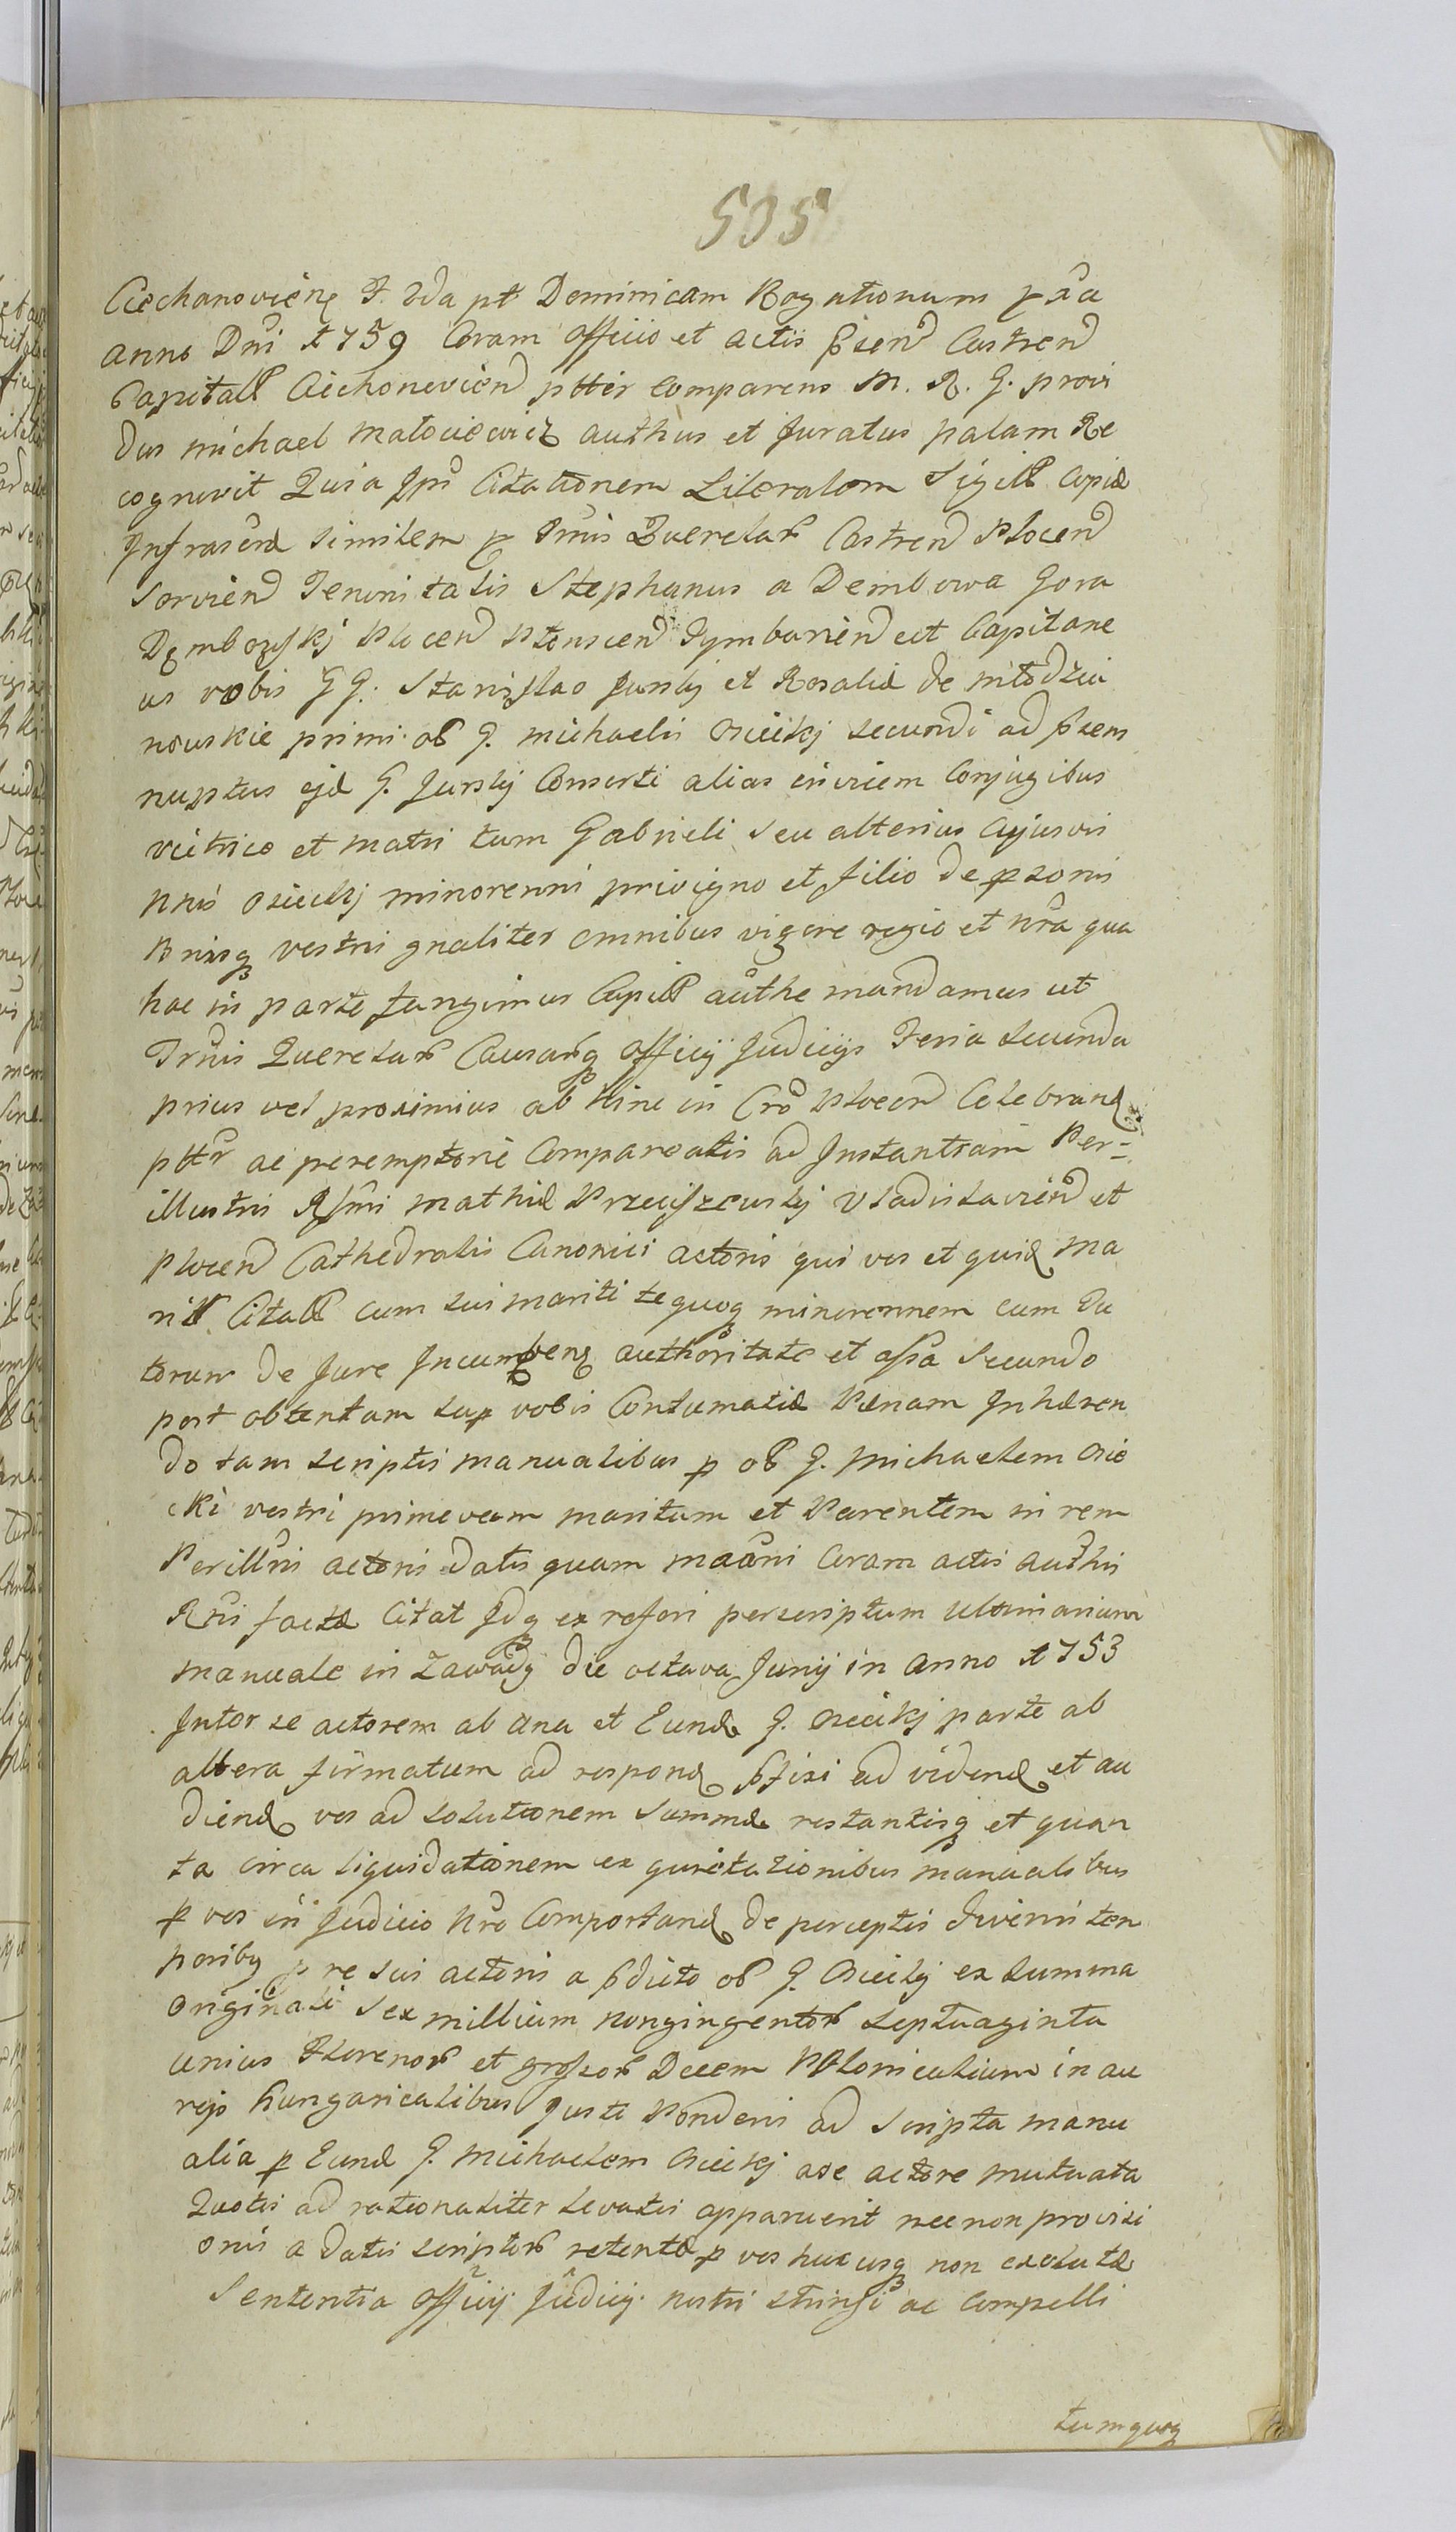 505
Ciechanovien F. 2da pt Dominicam Rogationum pxa
anno Dni 1759 Coram Officio et actis psen Castren
Capitall Ciechonovien ptter comparens M. R. G. provi
dus michael matociewicz authus et Juratus palam Re
cognovit Quia Ips Citationem Literalem Sigill Capia
Infrascra similem p Trmis Querelar Castren Plocen
Servien Tenoris talis Stephanus a Dembowa Gora
Dembowskj Plocen Tymbarien ect Capitane
us vobis GG. Stanislao Jurskj et Rosalia de mtodzia
nowskie primi ob G. michaelis Osieckj secundi ad psens
nuptus ejd G. Jurskj Consorti alias invicem Conjugibus
vitrico et matri tum Gabrieli seu alterius Cujusvis
nnis Osieckj minorenni privigno et filio de psonis
Bnisq vestris gnaliter omnibus vigore regio et nra qua
hac in parte fungimur Capill authe mandamus ut
Trmis Querelar Causarq Officij Judicijs Feria secunda
prius vel proximius ab hinc in Cro Plocen Celebrand
pttr ac peremptorie Compareatis ad Instantiam Per-
illustris Rssmi mathia Przeciszewskj Vladislavien et
Plocen Cathedralis Canonici actoris qui vos et quid ma
rit Citatt cum sui mariti te quoq minorennem cum Tu
torum de Jure Incumbenq authoritate et assa Secundo
post obtentam sup vobis Contumatia Pœnam Inhæren
do tam scriptis manualibus p ob G. Michaelem Osie
cki vestri primevam maritum et Parentem in rem
Perillris actoris datis quam maani Coram actis authis
Rnis facta Citat Idq ex refori perscriptum ultimarium
manuale in Zawady die octava Junij in anno 1753
Inter se actorem ab una et Eund G. Osieckj parte ab
altera firmatum ad respond pfixi ad vidend et au
diend vos ad solutionem Summa restantisq et quan
ta circa liquidationem ex quietationibus manualibus
p vos in Judicio nro Comportand de perceptis diversis tem
poriby p re sui actoris a pdicto ob G. Osieckj ex summa
originali Sex millium nongingentor septuaginta
unius Florenor et grossor Decem Polonicalium in au
reis hungaricalibus Justi Ponderis ad Scripta manu
alia p Eund G. Michaelem Osieckj a se actore mutuata
Quotis ad rationaliter levatis apparuerit necnon provisi
onis a datis scriptor retenta p vos hucusq non exoluta
Sententia Officij Judicij nostri stringi ac Compelli
tumquoq